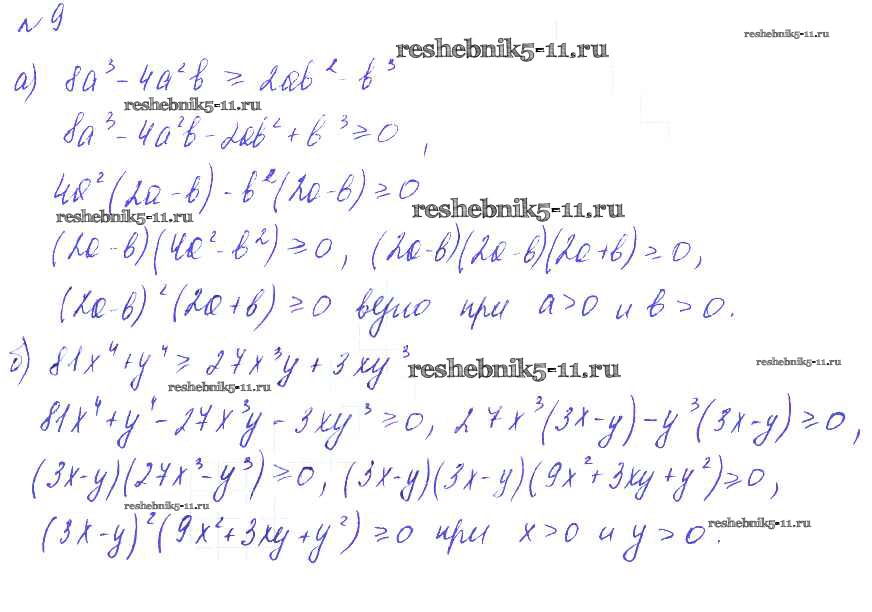 № 9
reshebnik5-11.ru
reshebnik5-11.ru
а) 8a³ - 4a²b ≥ 2ab² - b³
reshebnik5-11.ru
8a³ - 4a²b - 2ab² + b³ ≥ 0,
4a²(2a - b) - b²(2a - b) ≥ 0
reshebnik5-11.ru
reshebnik5-11.ru
(2a - b)(4a² - b²) ≥ 0, (2a - b)(2a - b)(2a + b) ≥ 0,
(2a - b)²(2a + b) ≥ 0 верно при a > 0 и b > 0.
б) 81x⁴ + y⁴ ≥ 27x³y + 3xy³
reshebnik5-11.ru
reshebnik5-11.ru
reshebnik5-11.ru
81x⁴ + y⁴ - 27x³y - 3xy³ ≥ 0, 27x³(3x - y) - y³(3x - y) ≥ 0,
(3x - y)(27x³ - y³) ≥ 0, (3x - y)(3x - y)(9x² + 3xy + y²) ≥ 0,
reshebnik5-11.ru
reshebnik5-11.ru
(3x - y)²(9x² + 3xy + y²) ≥ 0 при x > 0 и y > 0.